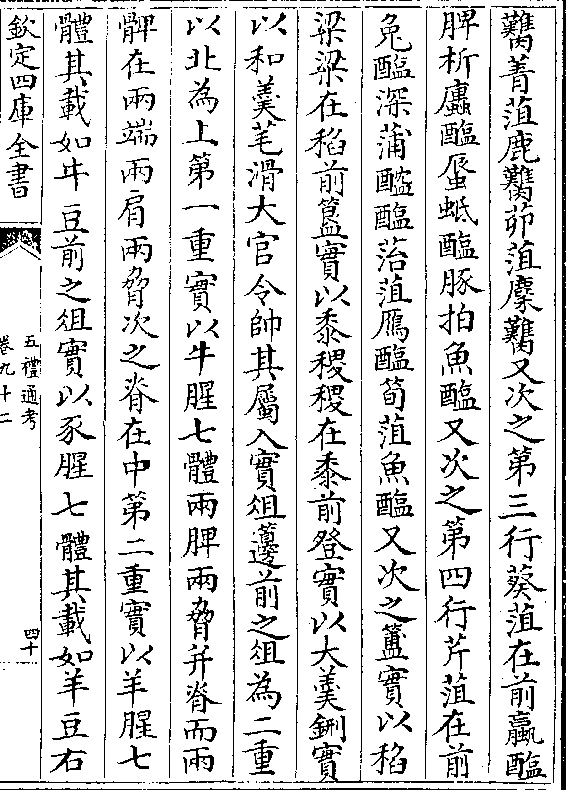 臡菁菹鹿臡茆菹麋臡又次之第三行葵菹在前蠃醢
脾析廬醢蜃蚳醢豚拍魚醢又次之第四行芹菹在前
兔醢深蒲醓醢菭菹鴈醢筍菹魚醢又次之簠實以稻
粱粱在稻前簋實以黍稷稷在黍前登實以大羹鉶實
以和羮芼滑大官令帥其屬入實俎籩前之俎為二重
以北為上第一重實以牛腥七體兩脾兩脅并脊而兩
髀在兩端兩肩兩脅次之脊在中第二重實以羊腥七
體其載如牛豆前之俎實以豕腥七體其載如羊豆右
欽定四庫全書
五禮通考
卷九十二
四十